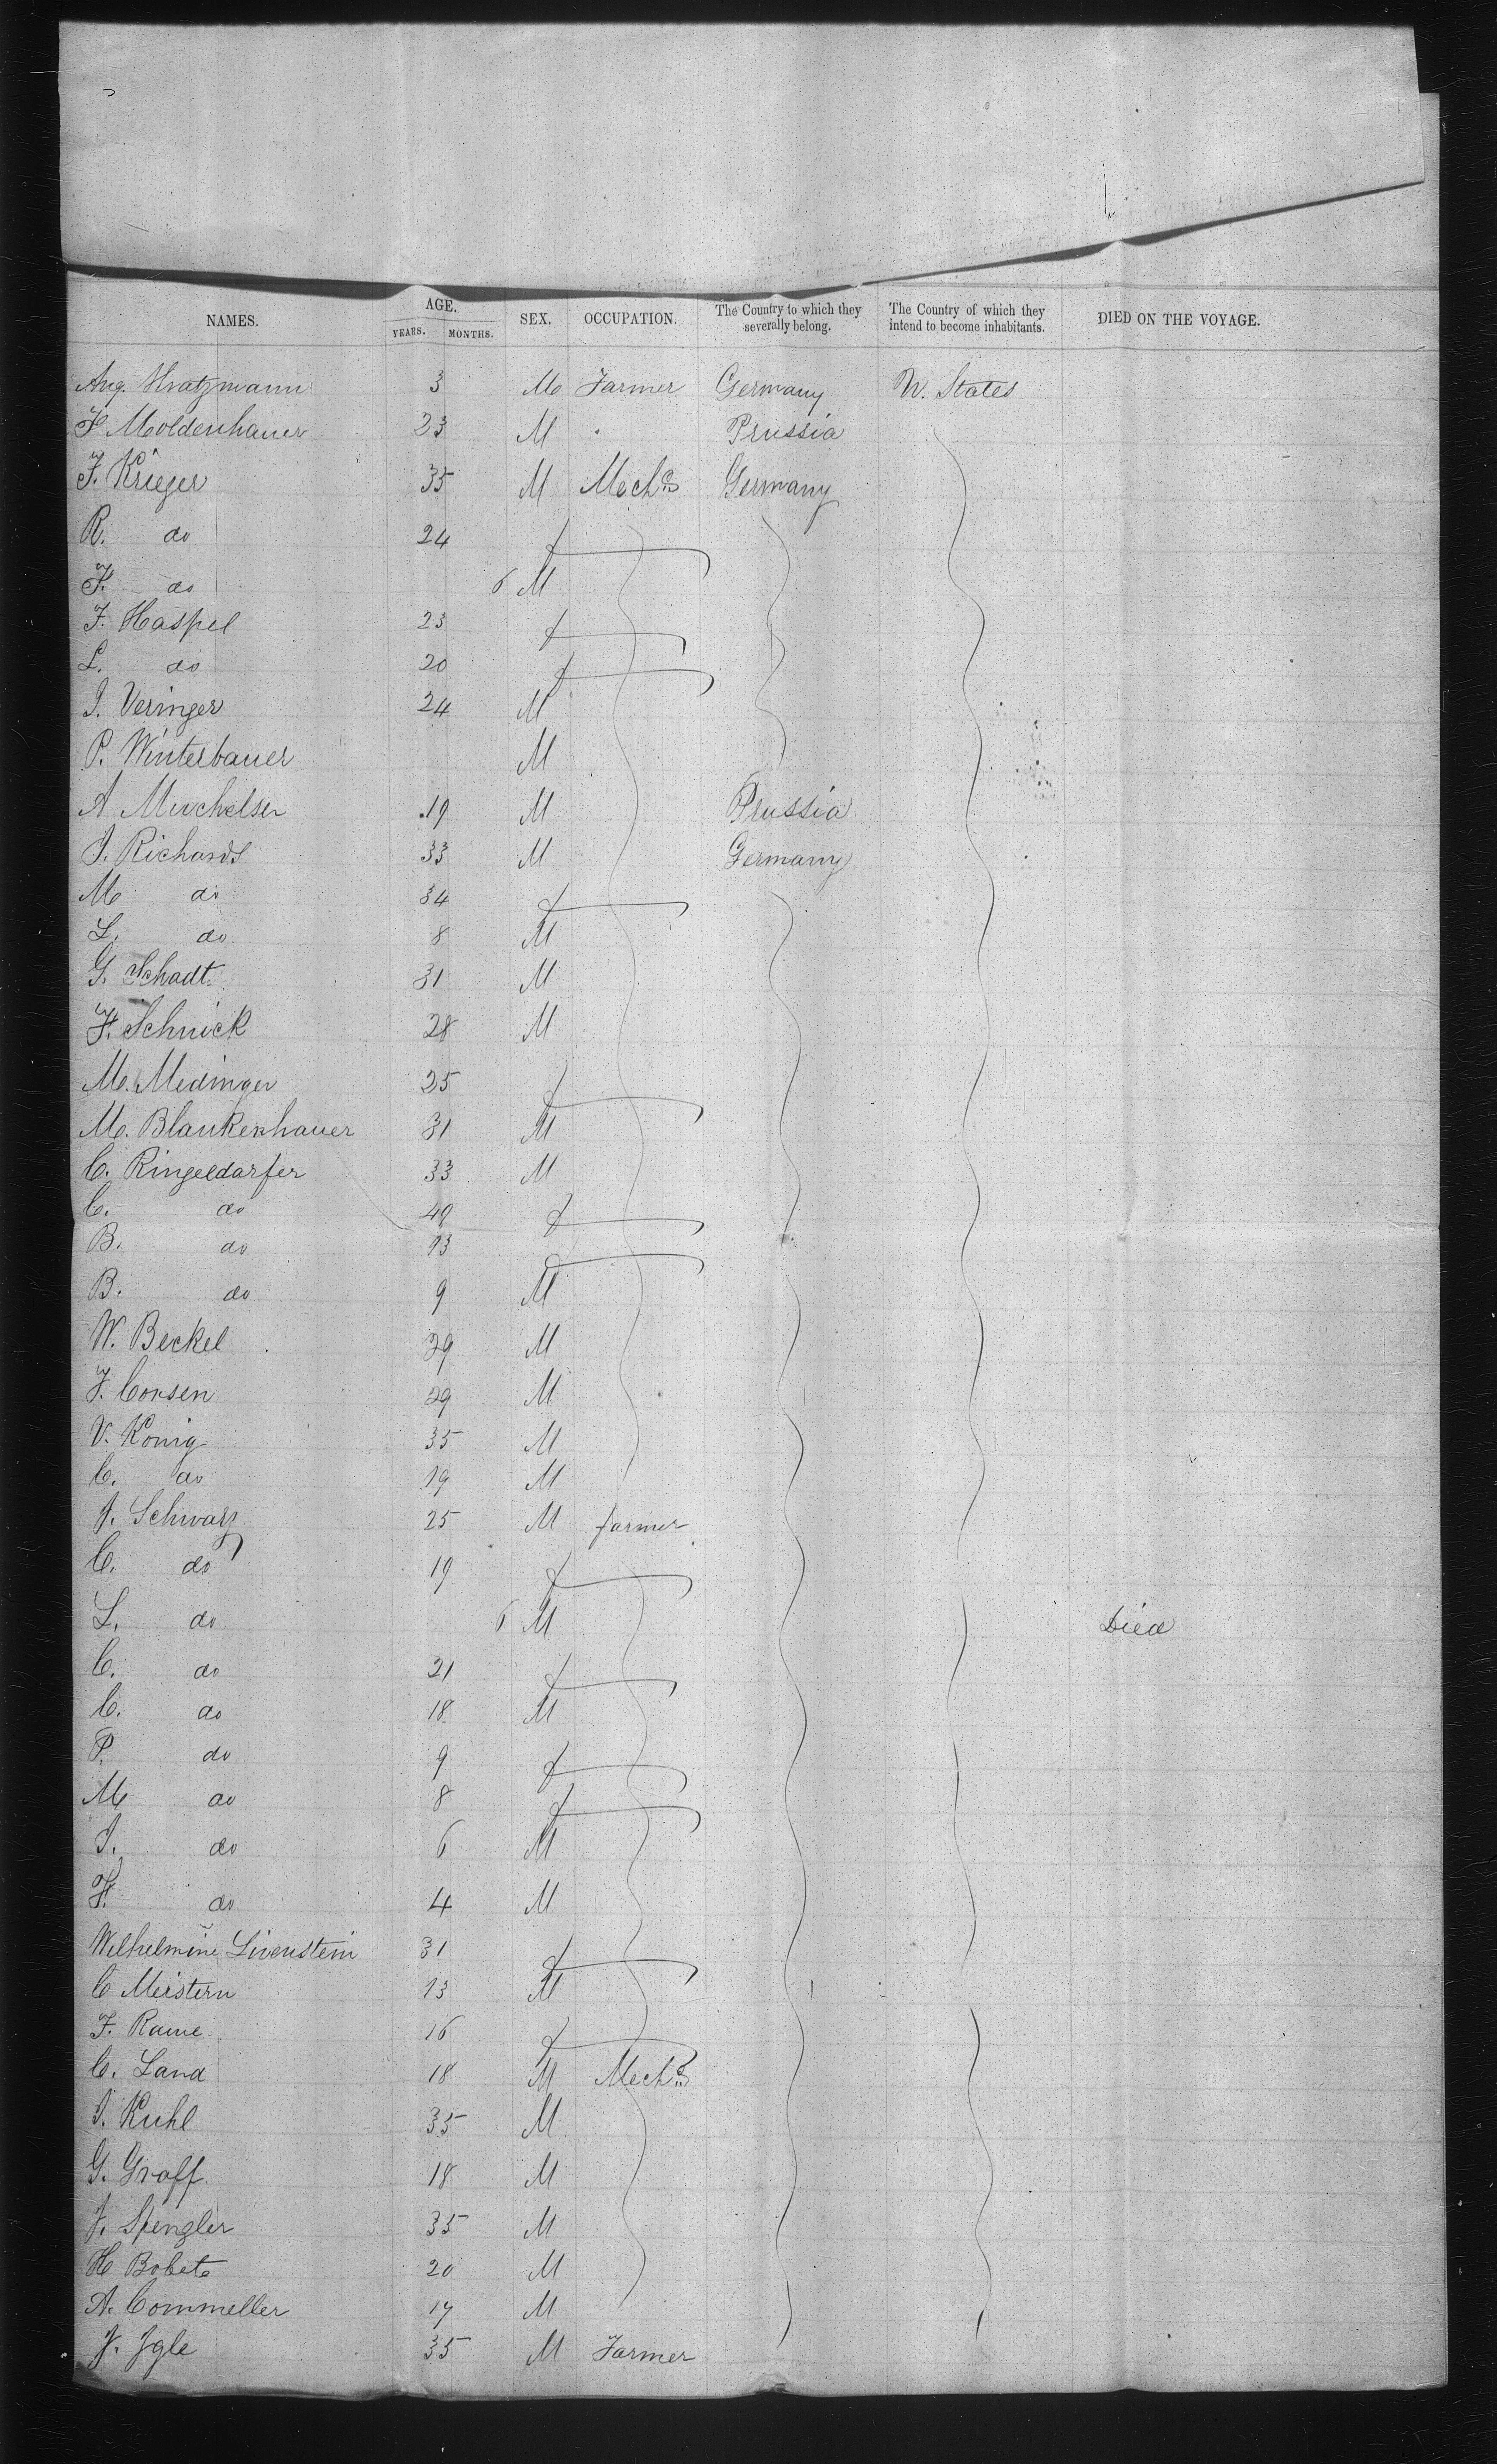 NAMES. AGE. YEARS. MONTHS. SEX. OCCUPATION. The Country to which they severally belong. The Country of which they intend to become inhabitants. DIED ON THE VOYAGE.
Aug. 3 M Farmer Germany U. States
F Moldenhauer 23 M Prussia
F. Krieger 35 M Mechs Germany
R. do 24 f
F. do 6 M
F. Haspel 23 f
L. do 20 f
J. Veringer 24 M
P. Winterbauer M
A 19 M Prussia
J. Richards 33 M Germany
M do 34 f
L. do 8 M
G. Schadt 31 M
F. Schnick 28 M
M. Medinger 25 f
M. Blankenhauer 31 M
C. Ringeldarfer 33 M
C. do 49 f
B. do 13
B. do 9 M
W. Beckel 29 M
F. Corsen 29 M
V. Konig 35 M
C. do 19 M
J. Schwarz 25 M farmer
C. do 19 f
L. do 6 M Died
C. do 21 f
C. do 18 M
P. do 9 f
M do 8 f
J. do 6 M
F. do 4 M
Wilhelmine Livenstein 31 f
C Meistern 13 M
F. Rame 16 f
C. Land 18 M Mechs
J. Kuhl 35 M
G. Graff 18 M
J. Spengler 35 M
H 20 M
A. Commeller 17 M
J. Igle 35 M Farmer